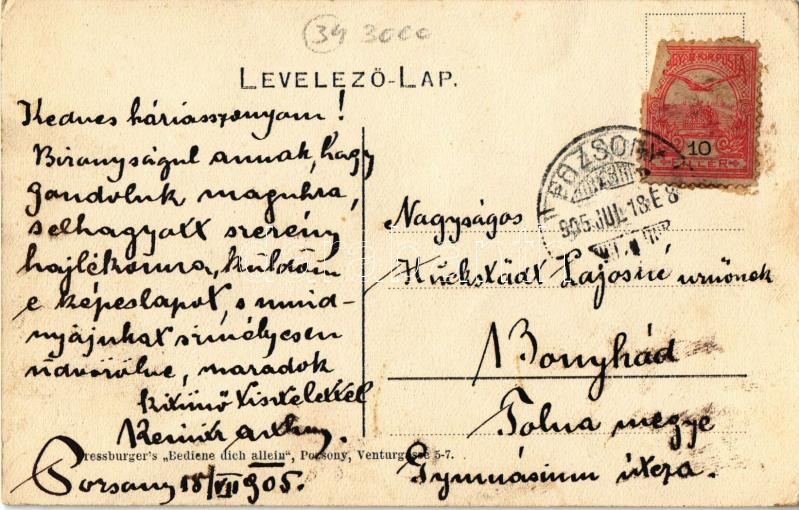 34 3000
LEVELEZŐ-LAP.
Kedves háziasszonyom!
Bizonyságul annak, hogy
gondolok magukra,
s elhagyott szerény
hajlékomra, küldöm
e képeslapot, s mind-
nyájukat személyesen
üdvözölve, maradok
kitünő tisztelettel
Pressburger's „Bediene dich allein“, Pozsony, Venturgasse 5-7.
Pozsony 18/VII 905.
MAGYAR KIR. POSTA
10
FILLÉR
POZSONY
905 JUL 18 E 8
Nagyságos
Huckstädt Lajosné urnőnek
Bonyhád
Tolna megye
Gymnásium utcza.